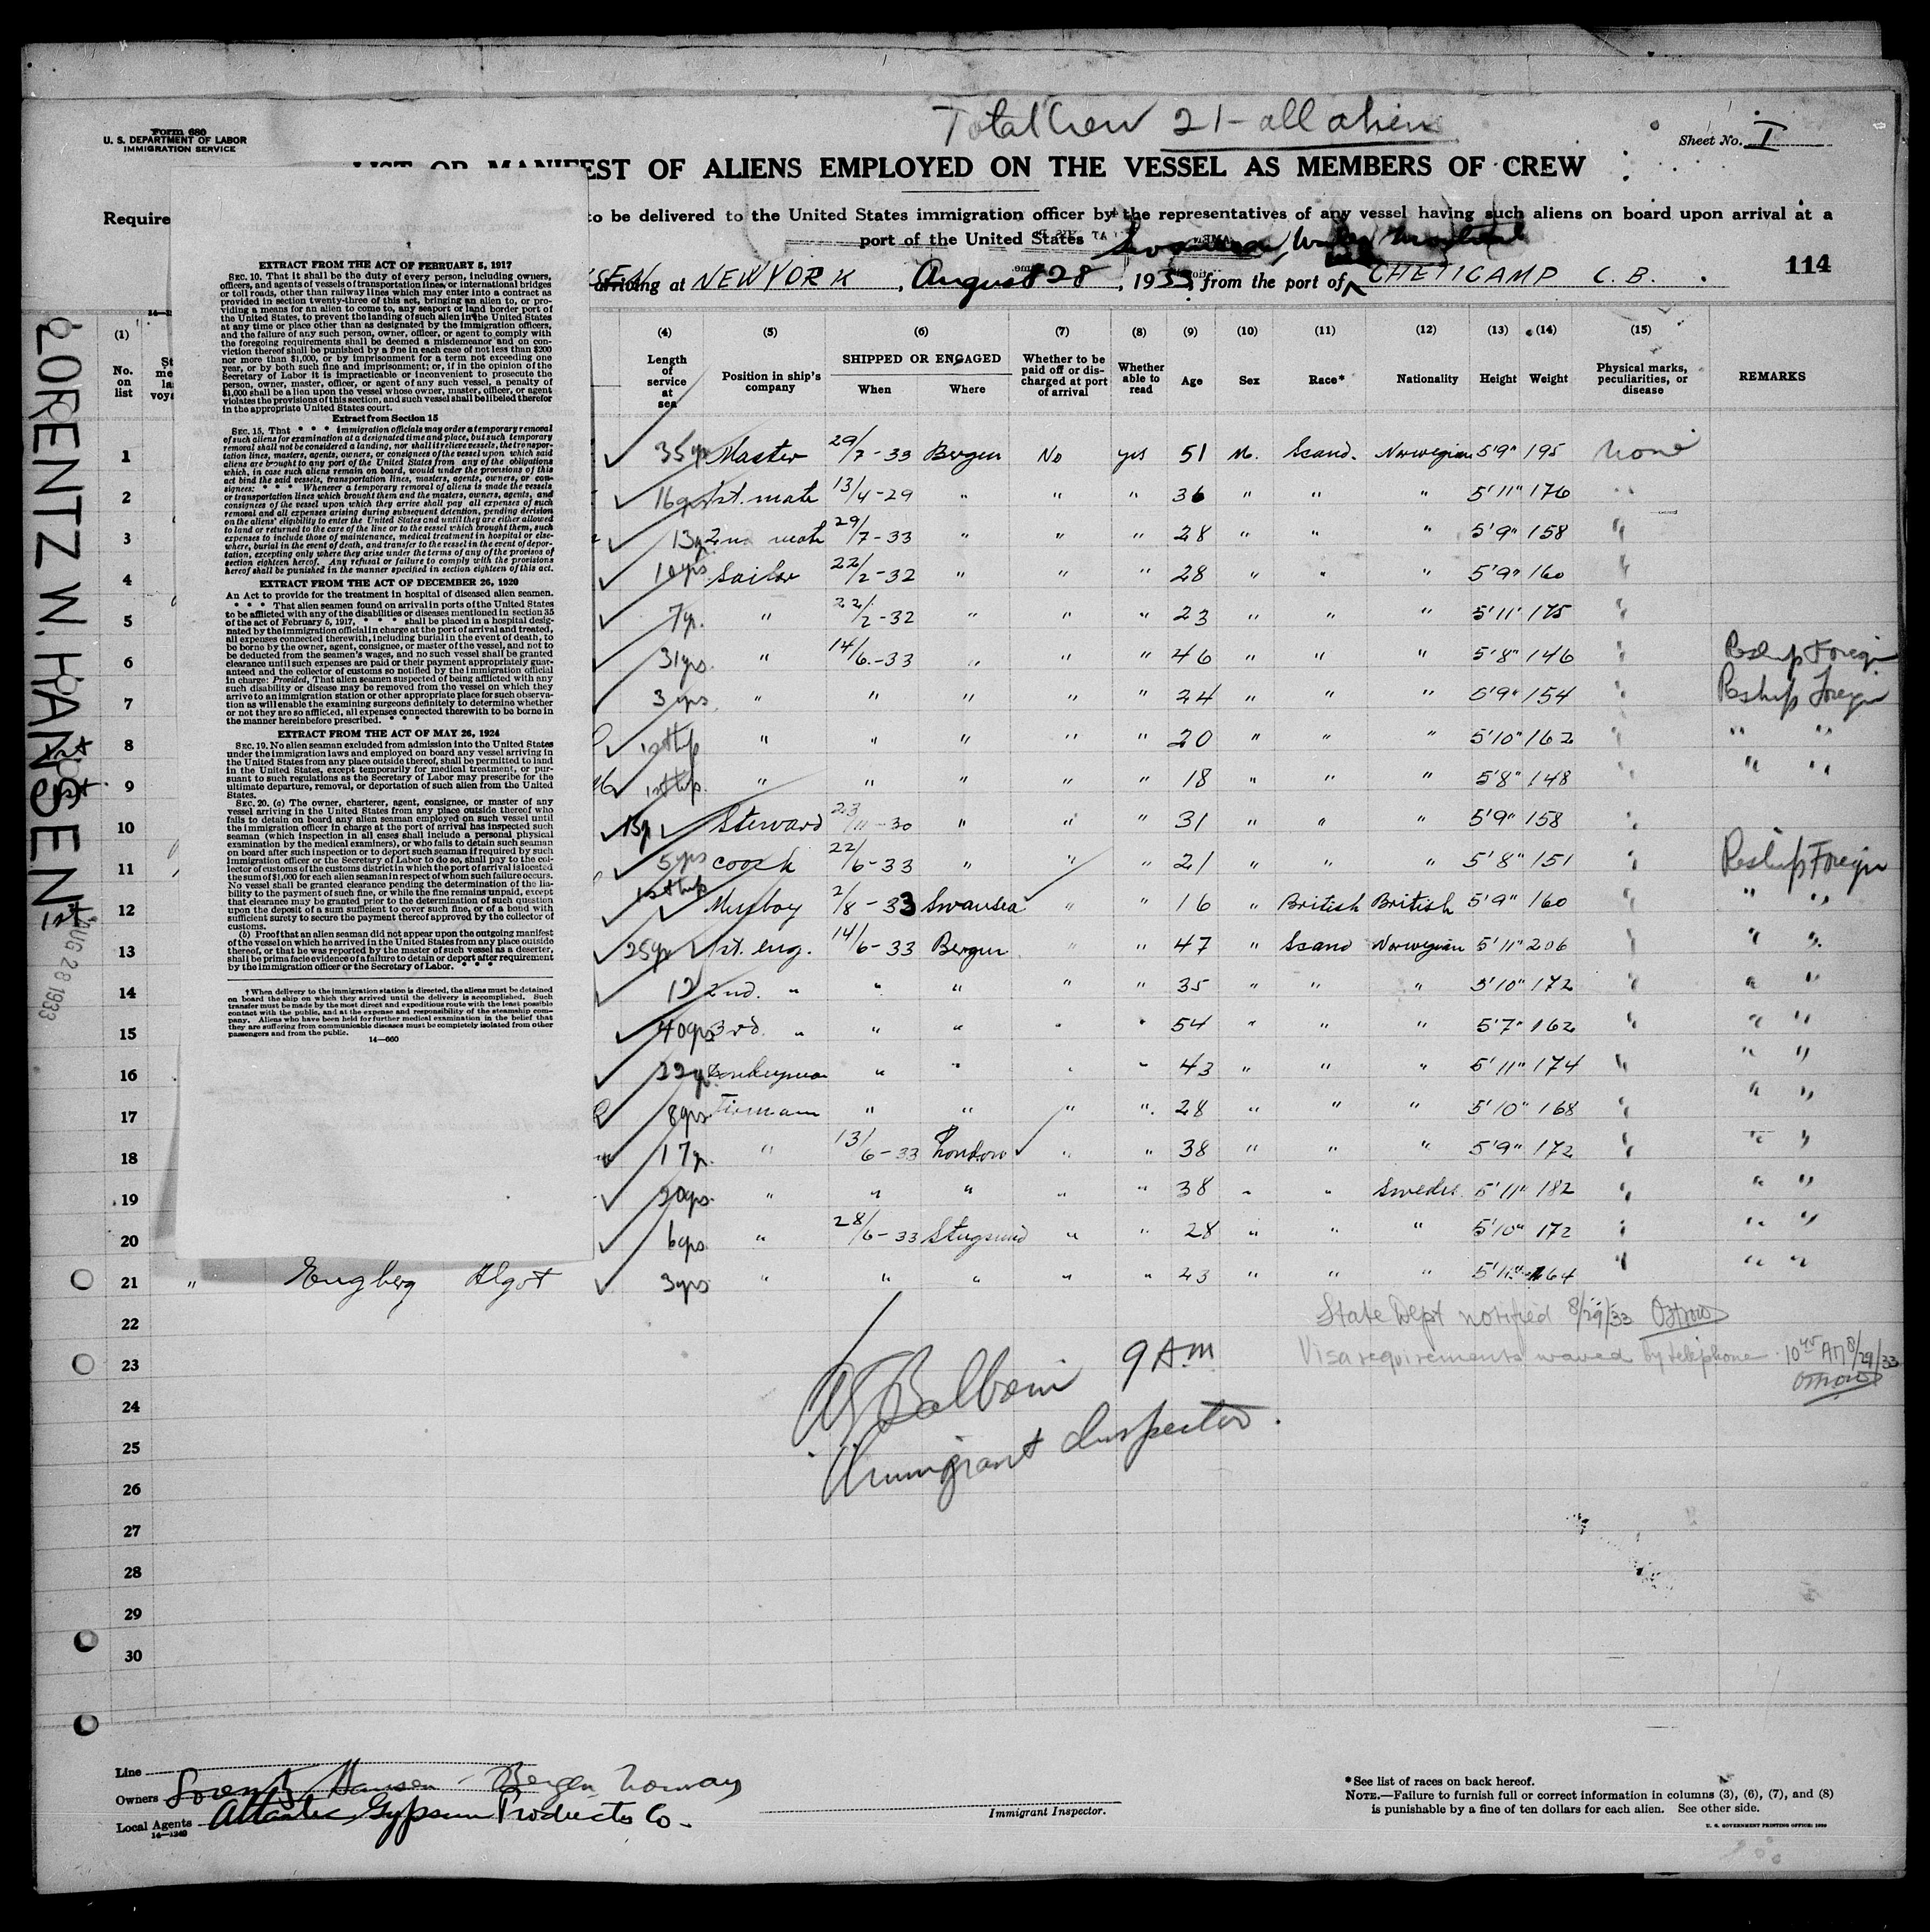 Total Crew 21 - all aliens
Form 680
U. S. DEPARTMENT OF LABOR
IMMIGRATION SERVICE
Sheet No. I
LIST OR MANIFEST OF ALIENS EMPLOYED ON THE VESSEL AS MEMBERS OF CREW
Require
to be delivered to the United States immigration officer by the representatives of any vessel having such aliens on board upon arrival at a
port of the United States
Swansea, Wales
SEN arriving at NEW YORK, August 28, 1933, from the port of CHETICAMP C. B.
114
LORENTZ W. HANSEN
AUG 28 1933
EXTRACT FROM THE ACT OF FEBRUARY 5, 1917
SEC. 10. That it shall be the duty of every person, including owners,
officers, and agents of vessels of transportation lines, or international bridges
or toll roads, other than railway lines which may enter into a contract as
provided in section twenty-three of this act, bringing an alien to, or pro-
viding a means for an alien to come to, any seaport or land border port of
the United States, to prevent the landing of such alien in the United States
at any time or place other than as designated by the immigration officers,
and the failure of any such person, owner, officer, or agent to comply with
the foregoing requirements shall be deemed a misdemeanor and on con-
viction thereof shall be punished by a fine in each case of not less than $200
nor more than $1,000, or by imprisonment for a term not exceeding one
year, or by both such fine and imprisonment; or, if in the opinion of the
Secretary of Labor it is impracticable or inconvenient to prosecute the
person, owner, master, officer, or agent of any such vessel, a penalty of
$1,000 shall be a lien upon the vessel whose owner, master, officer, or agent
violates the provisions of this section, and such vessel shall be libeled therefor
in the appropriate United States court.
Extract from Section 15
SEC. 15. That * * * immigration officials may order a temporary removal
of such aliens for examination at a designated time and place, but such temporary
removal shall not be considered a landing, nor shall it relieve vessels, the transpor-
tation lines, masters, agents, owners, or consignees of the vessel upon which said
aliens are brought to any port of the United States from any of the obligations
which, in case such aliens remain on board, would under the provisions of this
act bind the said vessels, transportation lines, masters, agents, owners, or con-
signees: * * * Whenever a temporary removal of aliens is made the vessels
or transportation lines which brought them and the masters, owners, agents, and
consignees of the vessel upon which they arrive shall pay all expenses of such
removal and all expenses arising during subsequent detention, pending decision
on the aliens' eligibility to enter the United States and until they are either allowed
to land or returned to the care of the line or to the vessel which brought them, such
expenses to include those of maintenance, medical treatment in hospital or else-
where, burial in the event of death, and transfer to the vessel in the event of depor-
tation, excepting only where they arise under the terms of any of the provisos of
section eighteen hereof. Any refusal or failure to comply with the provisions
hereof shall be punished in the manner specified in section eighteen of this act.
EXTRACT FROM THE ACT OF DECEMBER 26, 1920
An Act to provide for the treatment in hospital of diseased alien seamen.
* * * That alien seamen found on arrival in ports of the United States
to be afflicted with any of the disabilities or diseases mentioned in section 35
of the act of February 5, 1917, * * * shall be placed in a hospital desig-
nated by the immigration official in charge at the port of arrival and treated,
all expenses connected therewith, including burial in the event of death, to
be borne by the owner, agent, consignee, or master of the vessel, and not to
be deducted from the seamen's wages, and no such vessel shall be granted
clearance until such expenses are paid or their payment appropriately guar-
anteed and the collector of customs so notified by the immigration official
in charge: Provided, That alien seamen suspected of being afflicted with any
such disability or disease may be removed from the vessel on which they
arrive to an immigration station or other appropriate place for such observa-
tion as will enable the examining surgeons definitely to determine whether
or not they are so afflicted, all expenses connected therewith to be borne in
the manner hereinbefore prescribed. * * *
EXTRACT FROM THE ACT OF MAY 26, 1924
SEC. 19. No alien seaman excluded from admission into the United States
under the immigration laws and employed on board any vessel arriving in
the United States from any place outside thereof, shall be permitted to land
in the United States, except temporarily for medical treatment, or pur-
suant to such regulations as the Secretary of Labor may prescribe for the
ultimate departure, removal, or deportation of such alien from the United
States.
SEC. 20. (a) The owner, charterer, agent, consignee, or master of any
vessel arriving in the United States from any place outside thereof who
fails to detain on board any alien seaman employed on such vessel until
the immigration officer in charge at the port of arrival has inspected such
seaman (which inspection in all cases shall include a personal physical
examination by the medical examiners), or who fails to detain such seaman
on board after such inspection or to deport such seaman if required by such
immigration officer or the Secretary of Labor to do so, shall pay to the col-
lector of customs of the customs district in which the port of arrival is located
the sum of $1,000 for each alien seaman in respect of whom such failure occurs.
No vessel shall be granted clearance pending the determination of the lia-
bility to the payment of such fine, or while the fine remains unpaid, except
that clearance may be granted prior to the determination of such question
upon the deposit of a sum sufficient to cover such fine, or of a bond with
sufficient surety to secure the payment thereof approved by the collector of
customs.
(b) Proof that an alien seaman did not appear upon the outgoing manifest
of the vessel on which he arrived in the United States from any place outside
thereof, or that he was reported by the master of such vessel as a deserter,
shall be prima facie evidence of a failure to detain or deport after requirement
by the immigration officer or the Secretary of Labor. * * *
† When delivery to the immigration station is directed, the aliens must be detained
on board the ship on which they arrived until the delivery is accomplished. Such
transfer must be made by the most direct and expeditious route with the least possible
contact with the public, and at the expense and responsibility of the steamship com-
pany. Aliens who have been held for further medical examination in the belief that
they are suffering from communicable diseases must be completely isolated from other
passengers and from the public.
14—660
(1) (4) (5) (6) (7) (8) (9) (10) (11) (12) (13) (14) (15)
No. on list
Length of service at sea
Position in ship's company
SHIPPED OR ENGAGED
When Where
Whether to be paid off or discharged at port of arrival
Whether able to read
Age Sex Race* Nationality Height Weight
Physical marks, peculiarities, or disease
REMARKS
1 35 yrs Master 29/7-33 Bergen No yes 51 M. Scand. Norwegian 5'9" 195 None
2 16 yrs 1st. mate 13/4-29 " " " 36 " " " 5'11" 176 "
3 13 yr 2nd mate 29/7-33 " " " 28 " " " 5'9" 158 "
4 10 yrs Sailor 22/2-32 " " " 28 " " " 5'9" 160 "
5 7 yr. " 22/2-32 " " " 23 " " " 5'11" 175 "
6 31 yrs. " 14/6-33 " " " 46 " " " 5'8" 146 " Reship Foreign
7 3 yrs " " " " " 24 " " " 5'9" 154 " Reship Foreign
8 1st trip " " " " " 20 " " " 5'10" 162 " " "
9 1st trip. " " " " " 18 " " " 5'8" 148 " " "
10 13 yr Steward 23/11-30 " " " 31 " " " 5'9" 158 "
11 5 yrs coock 22/6-33 " " " 21 " " " 5'8" 151 " Reship Foreign
12 1st trip Messboy 2/8-33 Swansea " " 16 " British British 5'9" 160 " " "
13 25 yr 1st. eng. 14/6-33 Bergen " " 47 " Scand Norwegian 5'11" 206 " " "
14 12 2nd. " " " " " 35 " " " 5'10" 172 " " "
15 40 yrs 3rd. " " " " " 54 " " " 5'7" 162 " " "
16 22 yr. Donkeyman " " " " 43 " " " 5'11" 174 " " "
17 8 yrs Fireman " " " " 28 " " " 5'10" 168 " " "
18 17 yr. " 13/6-33 London " " 38 " " " 5'9" 172 " " "
19 20 yrs. " " " " " 38 " " Swedis 5'11" 182 " " "
20 6 yrs. " 28/6-33 Stugsund " " 28 " " " 5'10" 172 " " "
21 " Engberg Algot 3 yrs " " " " " 23 " " " 5'11" 164 " " "
22
23
24
25
26
27
28
29
30
State Dept notified 8/29/33 Ostrow
Visa requirements waved by telephone 10 45 AM 8/29/33
Ostrow
9 A.m
Immigrant Inspector.
Line
Owners Lorentz Hansen - Bergen Norway
Local Agents Atlantic Gypsum Products Co.
14—1240
Immigrant Inspector.
*See list of races on back hereof.
NOTE.—Failure to furnish full or correct information in columns (3), (6), (7), and (8)
is punishable by a fine of ten dollars for each alien. See other side.
U. S. GOVERNMENT PRINTING OFFICE: 1930